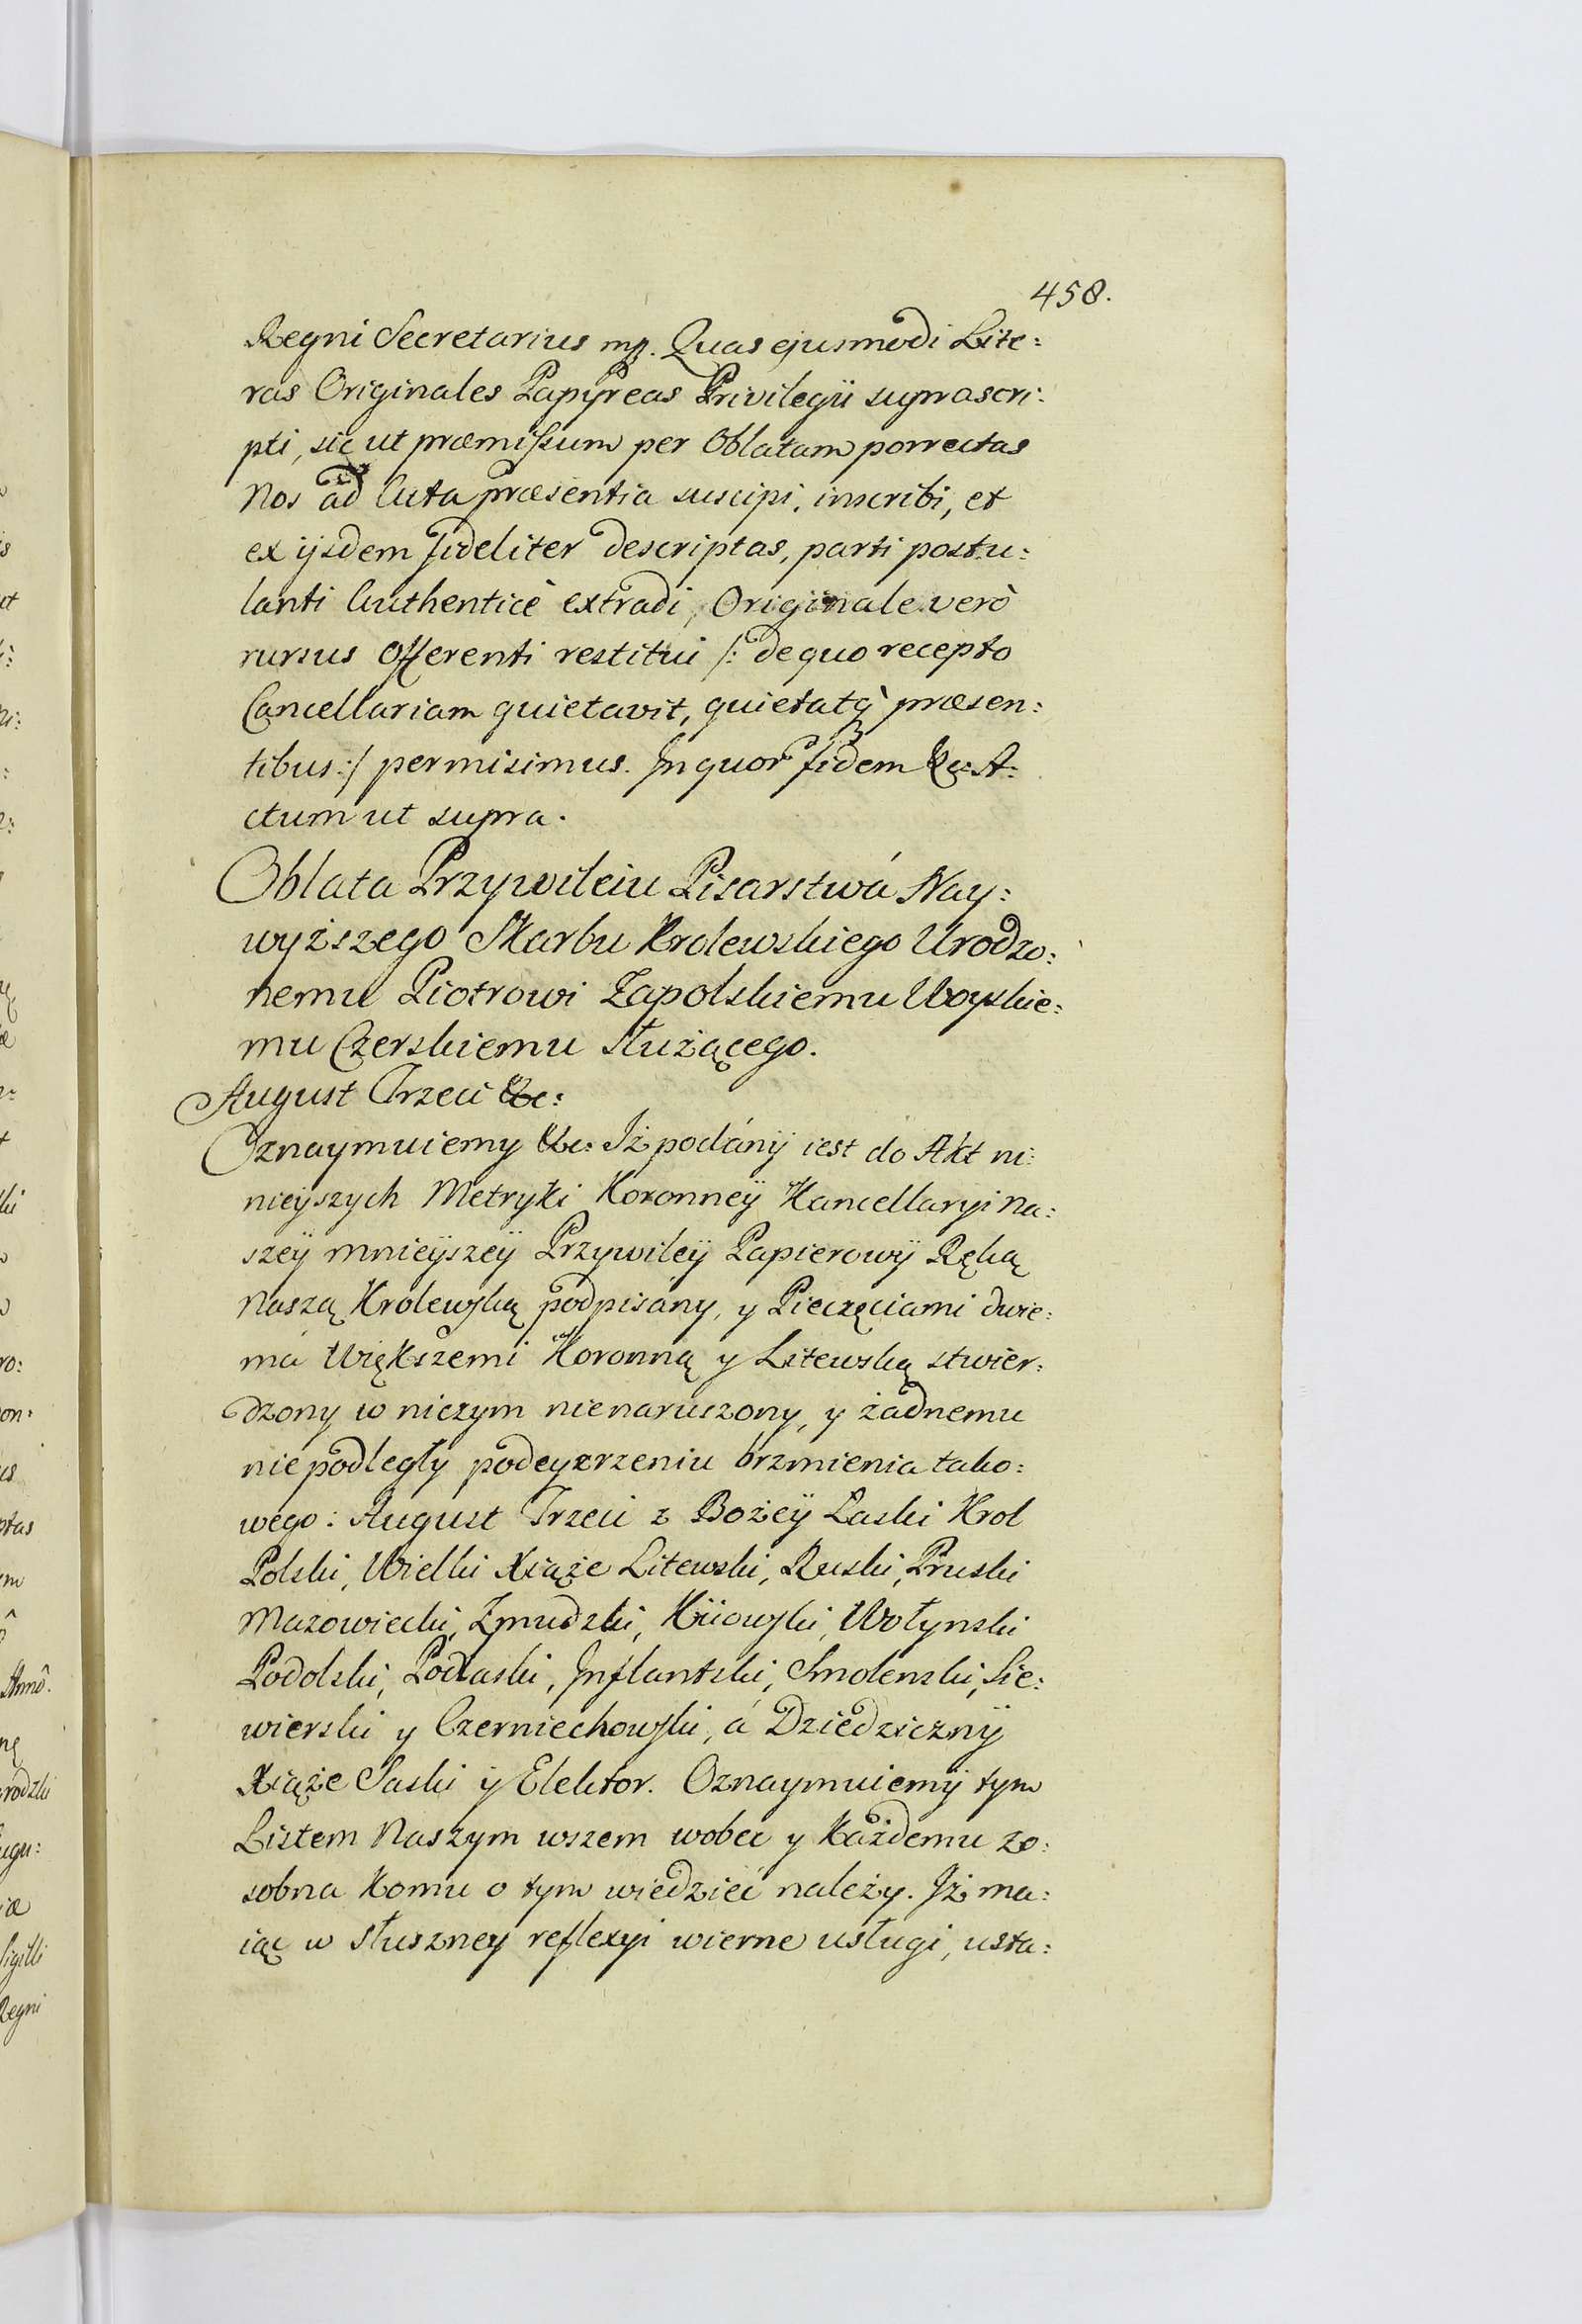 458.
Regni Secretarius mp. Quas ejusmodi Lite:
ras Originales Papÿreas Privilegii suprascri:
pti, sic ut præmissum per Oblatam porrectas
Nos ad Acta præsentia suscipi, inscribi, et
ex ijsdem fideliter descriptas, parti postu:
lanti Authenticè extradi, Originale verò
rursus Offerenti restitui /: de quo recepto
Cancellariam quietavit, quietatq̀ præsen:
tibus :/ permisimus. In quor fidem &c: A:
ctum ut supra.
Oblata Przywileiu Pisarstwá Nay:
wyższego Skarbu Krolewskiego Urodzo:
nemu Piotrowi Zapolskiemu Woyskie:
mu Czerskiemu służącego.
August Trzeci &c:
Oznaymuiemy &c: Iż podánÿ iest do Akt ni:
nieÿszych Metryki Koronneÿ Kancellaryi Na:
szeÿ mnieÿszeÿ Przywileÿ Papierowÿ Ręką
Naszą Krolewską podpisány, y Pieczęciami dwie:
má Większemi Koronną y Litewską stwier:
dzony w niczym nienaruszony, y żadnemu
niepodległy podeyzrzeniu brzmienia tako:
wego: August Trzeci z Bożeÿ Łaski Krol
Polski, Wielki Xiąże Litewski, Ruski, Pruski
Mazowiecki, Zmudzki, Kiiowski, Wołynski
Podolski, Podlaski, Inflantski, Smolenski, Sie:
wierski y Czerniechowski, á Dziedzicznÿ
Xiąże Saski ÿ Elektor. Oznaymuiemÿ tym
Listem Naszym wszem wobec y Każdemu zo:
sobna Komu o tym wiedzieć należy. Iż ma:
iąc w słuszney reflexyi wierne usługi, usta: